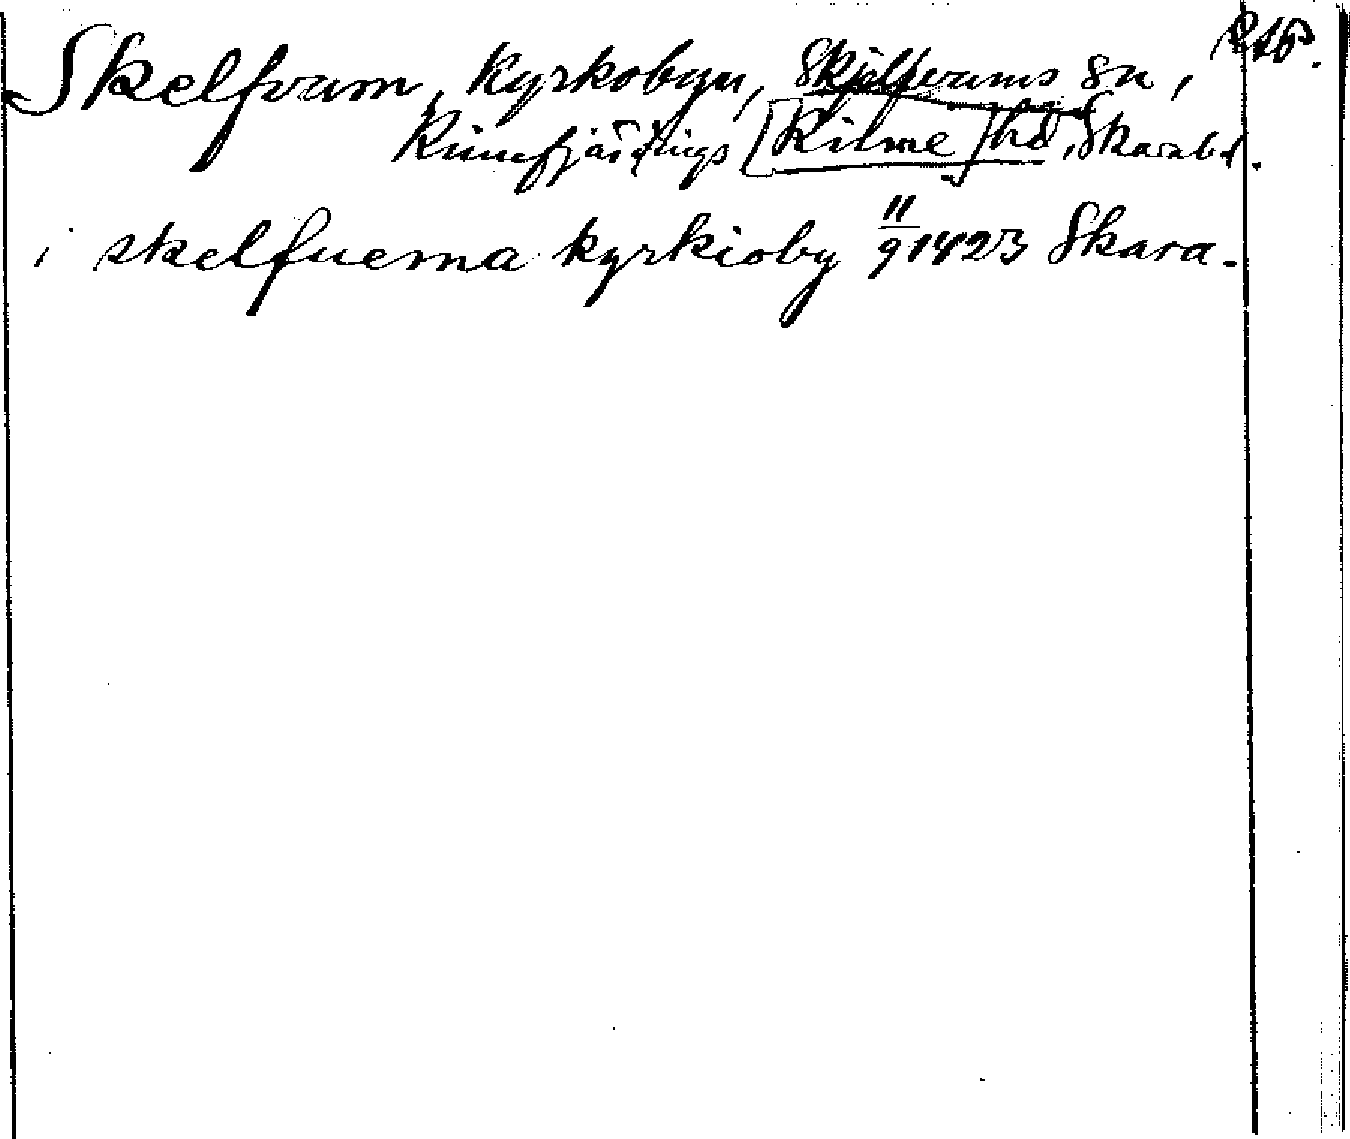 Skelfvum, Kyrkobyn, Skjelfvums sn,
Kinnefjärdings [Kilme] hd, Skarabl.
i skelfuema kyrkioby 11/9 1423 Skara.